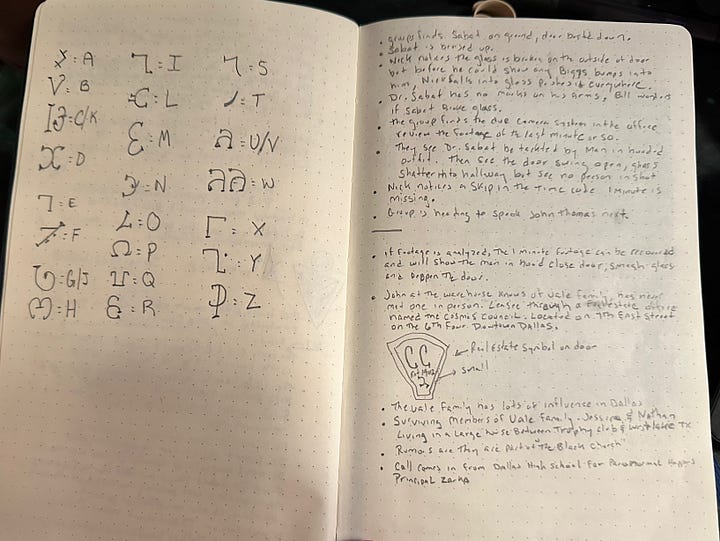 : A
: B
: C/K
: D
: E
: F
: G/J
: H
: I
: L
: M
: N
: O
: P
: Q
: R
: S
: T
: U/V
: W
: X
: Y
: Z
• groups finds Sabat on ground, door busted down.
• Sabat is beised up.
• Nick notices the glass is broken on the outside of door
but before he could show any Biggs bumps into
him, Nick falls into glass pushes it everywhere.
• Dr. Sabat has no marks on his arms, Bill wonders
if Sabat Broke glass.
• the group finds the camera system in the office
review the footage of the last minute or so.
• They see Dr. Sabat be by Man in hooded
outfit. Then see the door swing open, glass
shatter into hallway but see no person in shot
• Nick notices a Skip in the Time code 1 minute is
missing.
• Group is heading to speak John Thomas next.
• if footage is analyzed, The 1 minute footage can be recovered
and will show the man in hood close door, smash glass
and open the door.
• John at the warehouse knows of Vale family, has never
met one in person. Leases through a Real estate office
named the Cosmos Council. Located on 7th East Street
on the 6th Four. Downtown Dallas.
CC
← Real Estate Symbol on door
small
• The Vale Family has lots of influence in Dallas
• Surviving Members of Vale Family - Jessica & Nathan
Living in a Large house Between Trophy club & Westlake TX
• Rumors are They are part of "The Black Church"
• Call comes in from Dallas High School For Paranormal
Principal